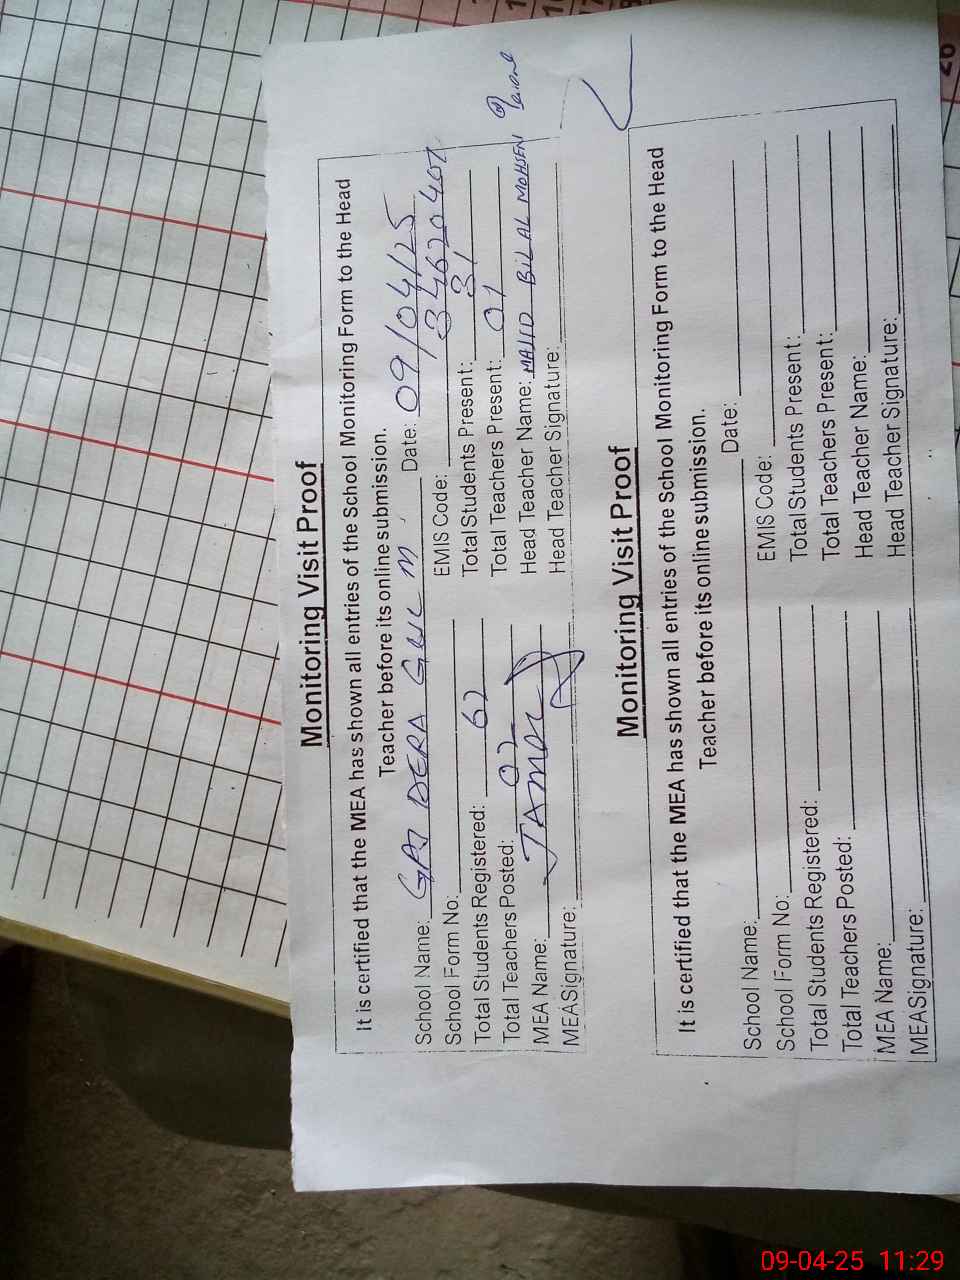 Monitoring Visit Proof
It is certified that the MEA has shown all entries of the School Monitoring Form to the Head
Teacher before its online submission.
School Name: DERA GUL M. Date: 09/04/25
School Form No: EMIS Code:
Total Students Registered: 62 Total Students Present: 31
Total Teachers Posted: 02 Total Teachers Present: 01
MEA Name: Head Teacher Name: MAJID BILAL MOHSEN
MEA Signature: Head Teacher Signature:
Monitoring Visit Proof
It is certified that the MEA has shown all entries of the School Monitoring Form to the Head
Teacher before its online submission.
School Name: Date:
School Form No: EMIS Code:
Total Students Registered: Total Students Present:
Total Teachers Posted: Total Teachers Present:
MEA Name: Head Teacher Name:
MEA Signature: Head Teacher Signature:
26
09-04-25 11:29